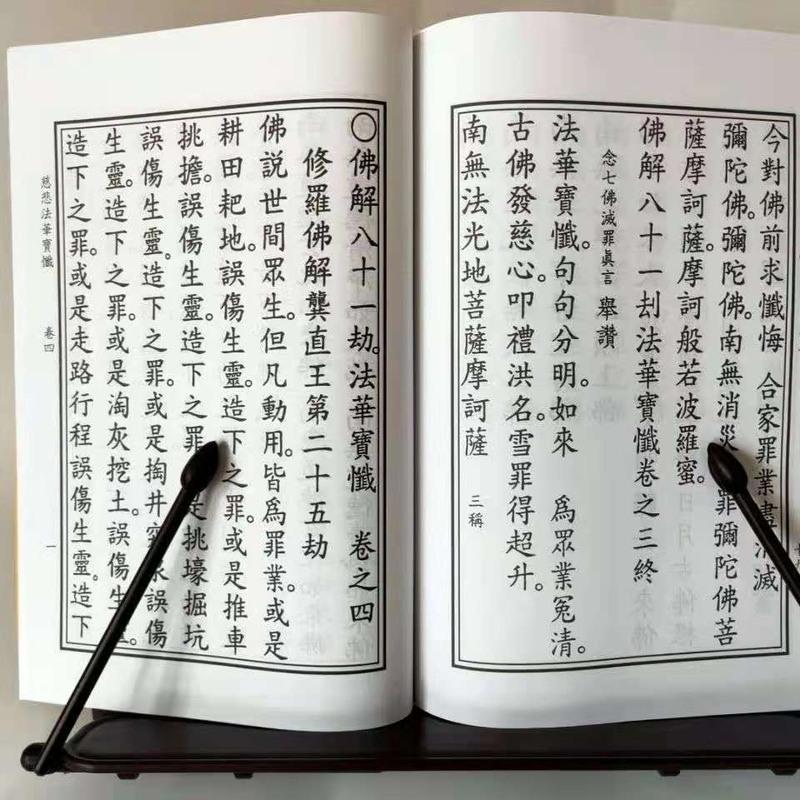 今對佛前求懺悔 合家罪業盡消滅
彌陀佛。彌陀佛。南無消災罪彌陀佛菩
薩摩訶薩。摩訶般若波羅蜜。
佛解八十一刦法華寶懺卷之三終
念七佛滅罪眞言 舉讚
法華寶懺。句句分明。如來 爲眾業冤清。
古佛發慈心。叩禮洪名。雪罪得超升。
南無法光地菩薩摩訶薩 三稱
○佛解八十一劫。法華寶懺 卷之四
修羅佛解龔直王第二十五劫
佛說世間眾生。但凡動用。皆爲罪業。或是
耕田耙地。誤傷生靈。造下之罪。或是推車
挑擔。誤傷生靈。造下之罪是挑壕掘坑
誤傷生靈。造下之罪。或是掏井泉誤傷
生靈。造下之罪。或是淘灰挖土。誤傷生靈。
造下之罪。或是走路行程誤傷生靈。造下
慈悲法華寶懺 卷四 一